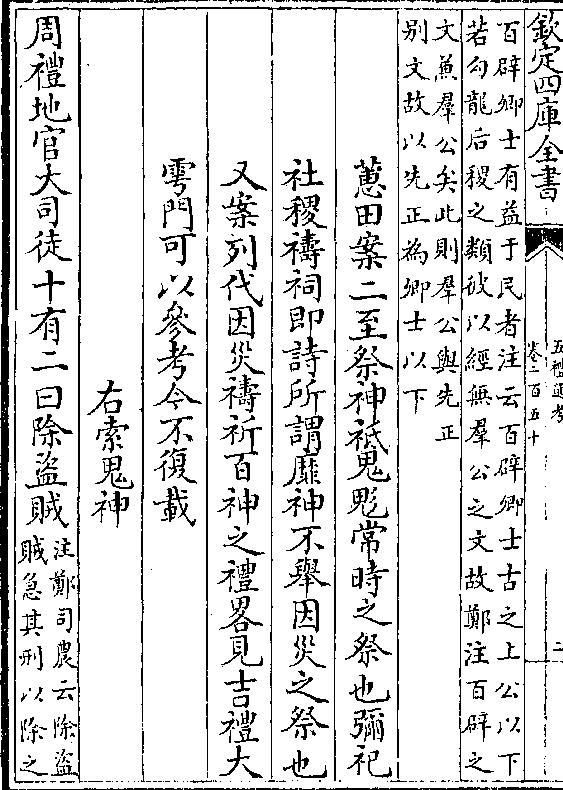 欽定四庫全書
五禮通考
卷二百五十
二
百辟卿士有益于民者注云百辟卿士古之上公以下
若勾龍后稷之類彼以經無羣公之文故鄭注百辟之
文兼羣公矣此則羣公與先正
別文故以先正為卿士以下
蕙田案二至祭神祗鬼鬽常時之祭也彌祀
社稷禱祠即詩所謂靡神不舉因災之祭也
又案列代因災禱祈百神之禮畧見吉禮大
雩門可以參考今不復載
右索鬼神
周禮地官大司徒十有二曰除盜賊
注鄭司農云除盜
賊急其刑以除之